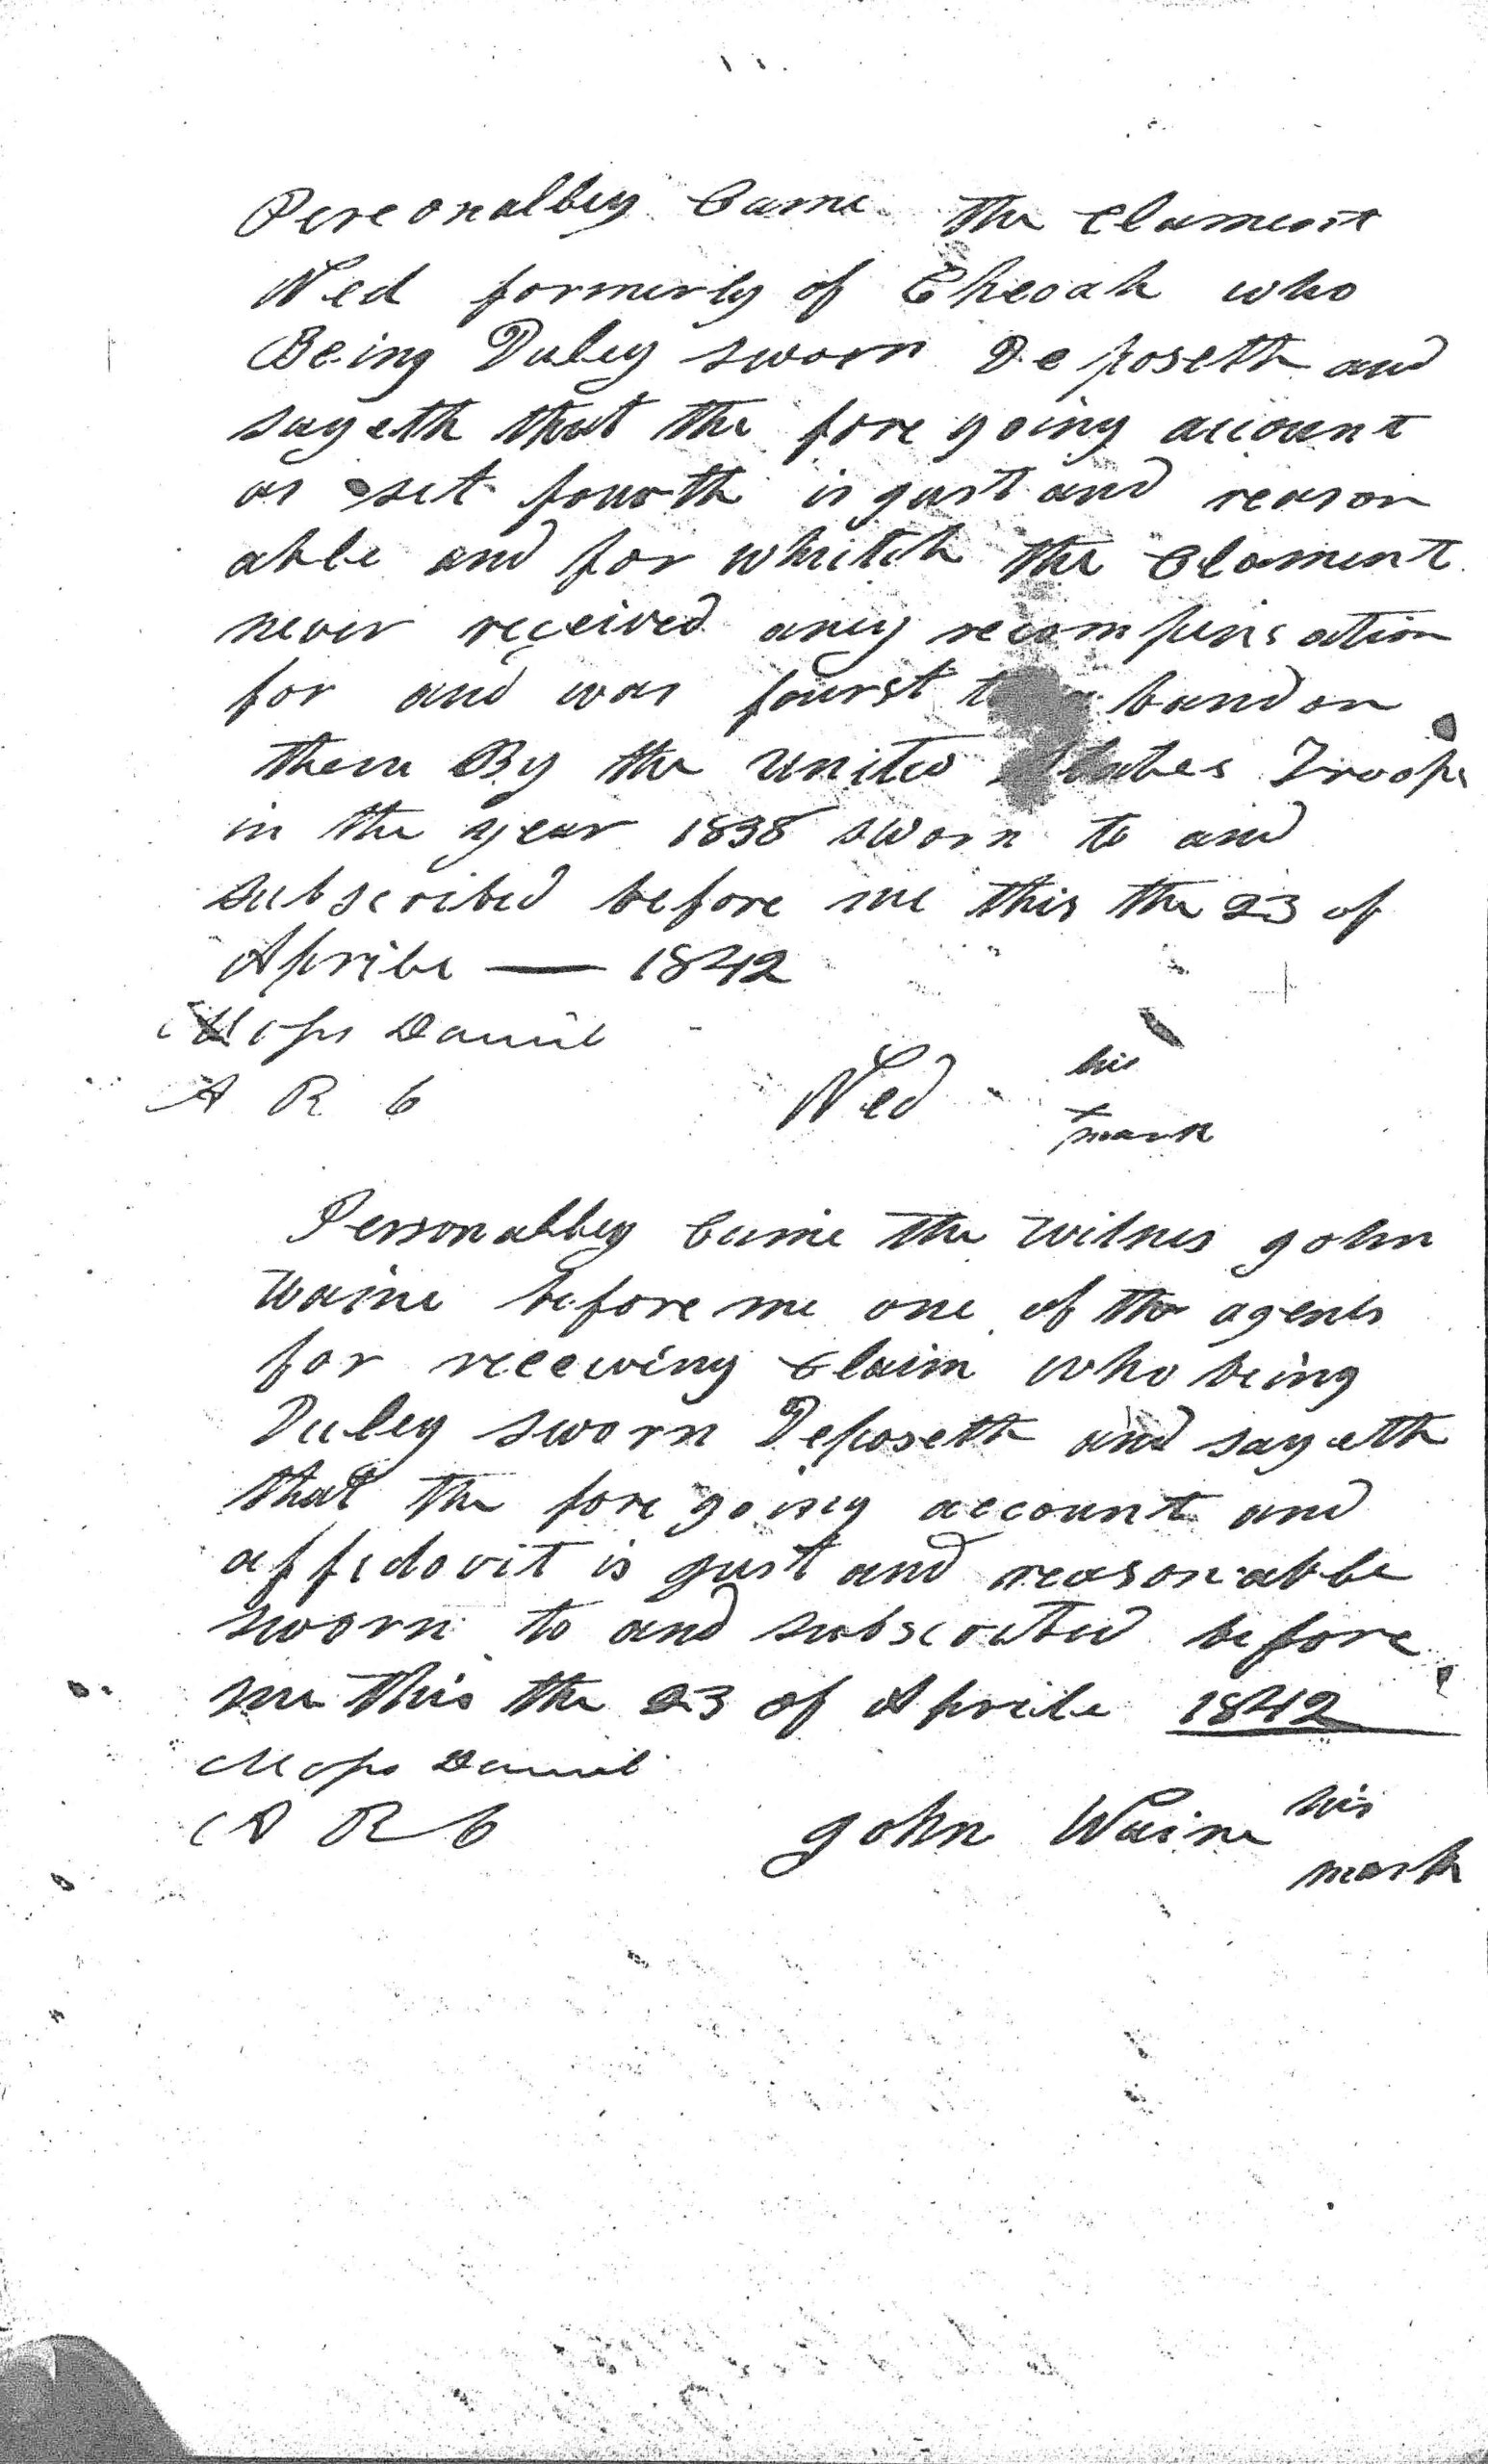 Personalley Came the Clament
Ned formerly of Cheoah who
Being Duley sworn Deposeth and
sayeth that the fore going account
as set fourth is just and reason
able and for whitch the Clament
never received any recompensation
for and was fourst to abandon
them By the United States Troops
in the year 1838 sworn to and
subscribed before me this the 23 of
Aprile — 1842
Daniel
A R C
Ned his
x
mark
Personalley Came the witnes john
Waine before me one of the agents
for receiving Claim who being
Duley sworn Deposeth and sayeth
that the fore going account and
affidavit is just and reasonable
sworn to and subscribed before
me this the 23 of Aprile 1842
Daniel
A R C
john Waine his
mark